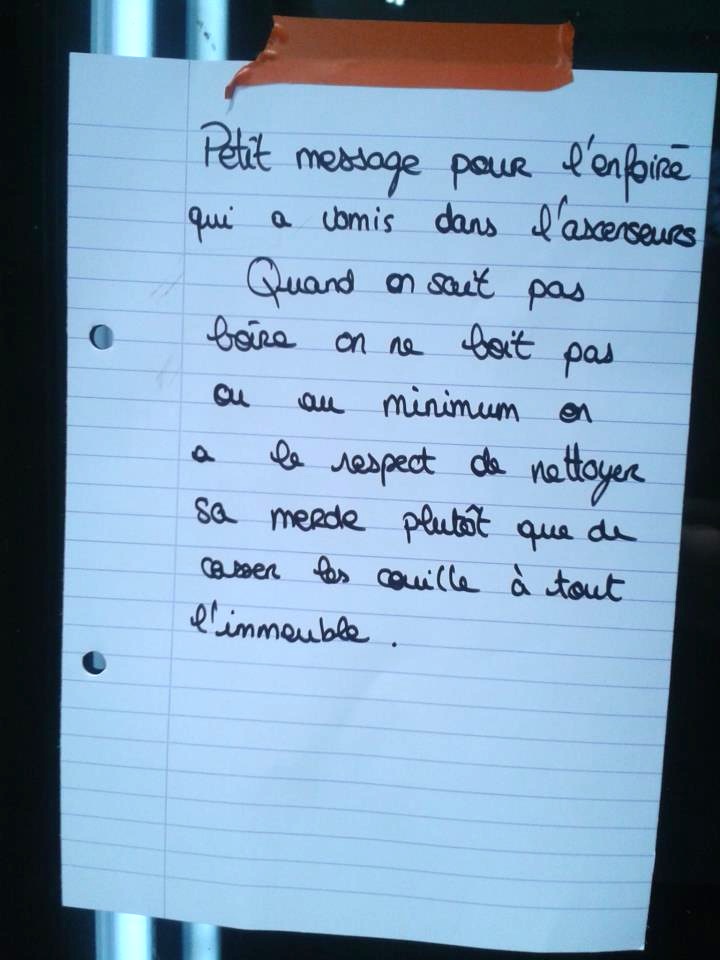 Petit message pour l'enfoiré
qui a vomis dans l'ascenseurs
Quand on sait pas
boire on ne boit pas
ou au minimum on
a le respect de nettoyer
sa merde plutôt que de
casser les couille à tout
l'immeuble.